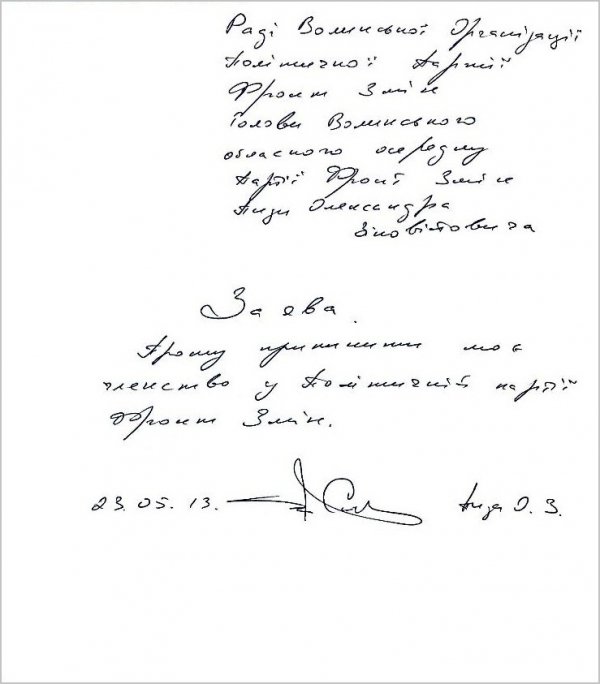 Раді Волинської Організації
Політичної Партії
Фронт Змін
Голови Волинського
обласного осередку
Партії Фронт Змін
Пизи Олександра
Зіновійовича
Заява.
Прошу припинити моє
членство у Політичній партії
Фронт Змін.
23.05.13. Пиза О. З.